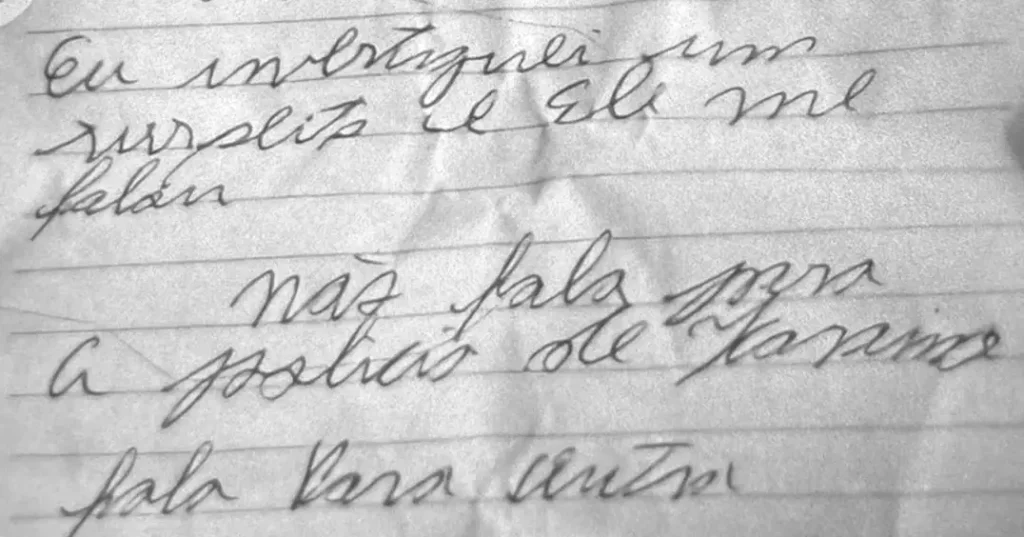 Eu investiguei um
suspeito e Ele me
falou
não fala pra
a policia de
fala para outra